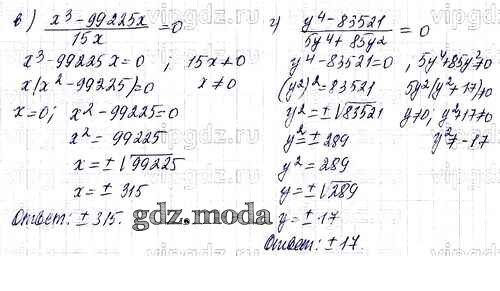 в) (x³-99225x)/15x = 0
x³-99225x=0 ; 15x≠0
x(x²-99225)=0 x≠0
x=0; x²-99225=0
x²= 99225
x=±√99225
x=± 315
Ответ: ± 315.
г) (y⁴-83521)/(5y⁴+85y²) = 0
y⁴-83521=0 , 5y⁴+85y²≠0
(y²)²=83521 5y²(y²+17)≠0
y²=±√83521 y≠0, y²+17≠0
y²=± 289 y²≠-17
y²=289
y=±√289
y=± 17
Ответ: ± 17.
gdz.moda
vipgdz.ru